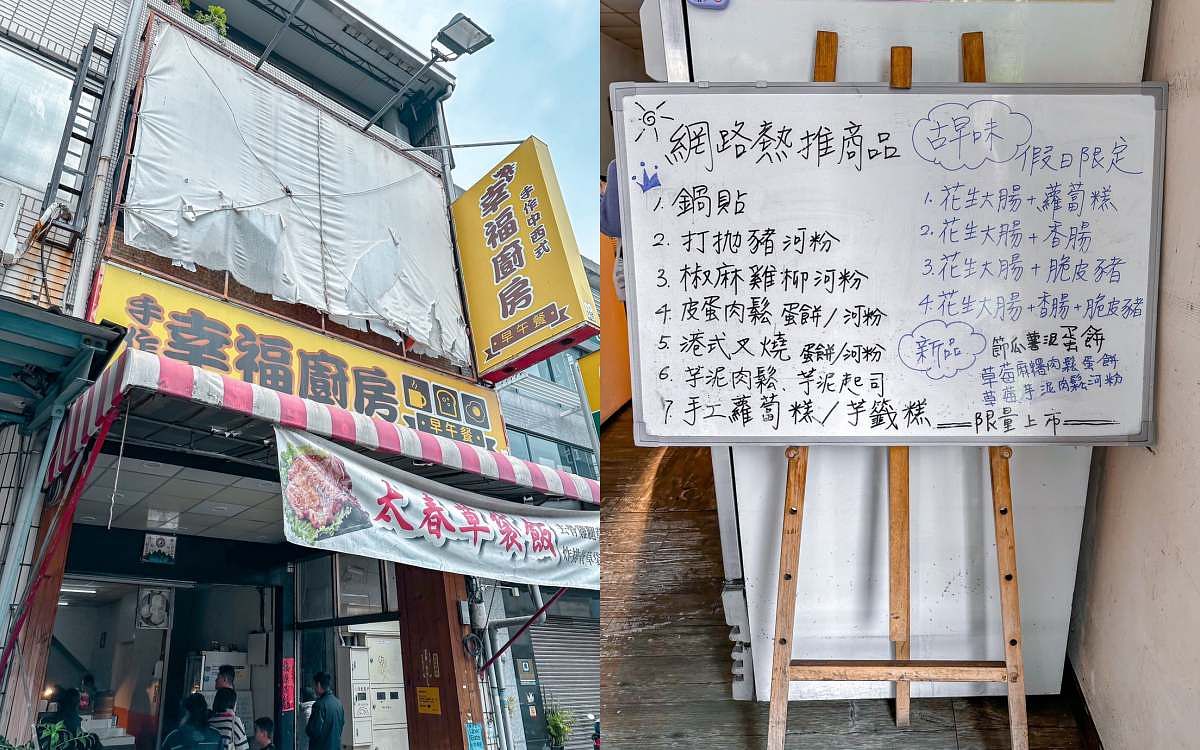 手作中西式
幸福廚房
早午餐
手作
幸福廚房
早午餐
太春草袋飯
網路熱推商品
1. 鍋貼
2. 打拋豬河粉
3. 椒麻雞柳河粉
4. 皮蛋肉鬆 蛋餅/河粉
5. 港式叉燒 蛋餅/河粉
6. 芋泥肉鬆、芋泥起司
7. 手工蘿蔔糕/芋籤糕
古早味
假日限定
1. 花生大腸+蘿蔔糕
2. 花生大腸+香腸
3. 花生大腸+脆皮豬
4. 花生大腸+香腸+脆皮豬
新品
節瓜薯泥蛋餅
草莓麻糬肉鬆蛋餅
草莓芋泥肉鬆河粉
限量上市